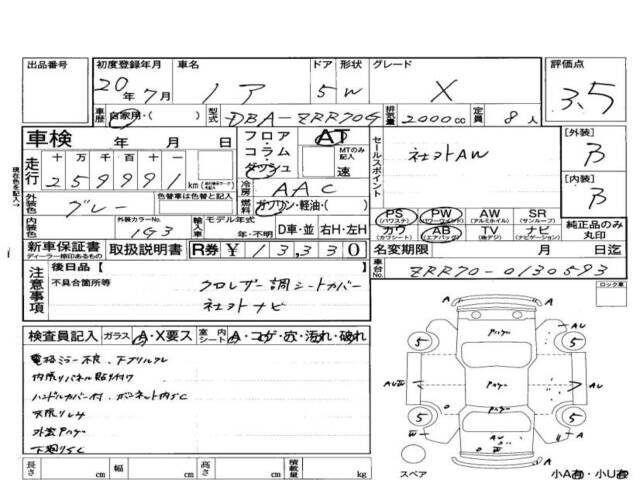 出品番号
初度登録年月 車名 ドア 形状 グレード 評価点
20年7月 ノア 5 W X 3.5
車歴 自家用・( ) 型式 DBA-ZRR70G 排気量 2000cc 定員 8人
車検 年 月 日
フロア・コラム・ダッシュ AT MTのみ記入 速
セールスポイント 社外AW
[外装] B
[内装] B
現在色を記入→
走行 十万千百十一 259991 km
冷房 AAC
外装色 グレー 色替車は色替と記入 燃料 ガソリン・軽油・( )
PS (パワステ) PW (パワーウインド) AW (アルミホイル) SR (サンルーフ)
カワ (カワシート) AB (エアバッグ) TV (地デジ) ナビ (ナビゲーション)
純正品のみ丸印
内装色 外装カラーNo. 1G3 輸入車 モデル年式 年・不明 D車・並 右H・左H
名変期限 月 日迄
新車保証書 ディーラー捺印あるもの 取扱説明書 R券 ¥13,330
車台No. ZRR70-0130593
注意事項 後日品[
不具合箇所等 クロレザー調シートカバー
社外ナビ
ロック車
検査員記入 ガラス A・X要ス 室内シート A・コゲ・穴・汚れ・破れ
電格ミラー不良、
ハンドルカバー付、ボンネット内SC
天張りしみ
下廻りSC
長さ cm 幅 cm 高さ cm 積載量 kg
A
AU
5
5
AU
5
5
A
A
スペア
小A㊒・小U㊒